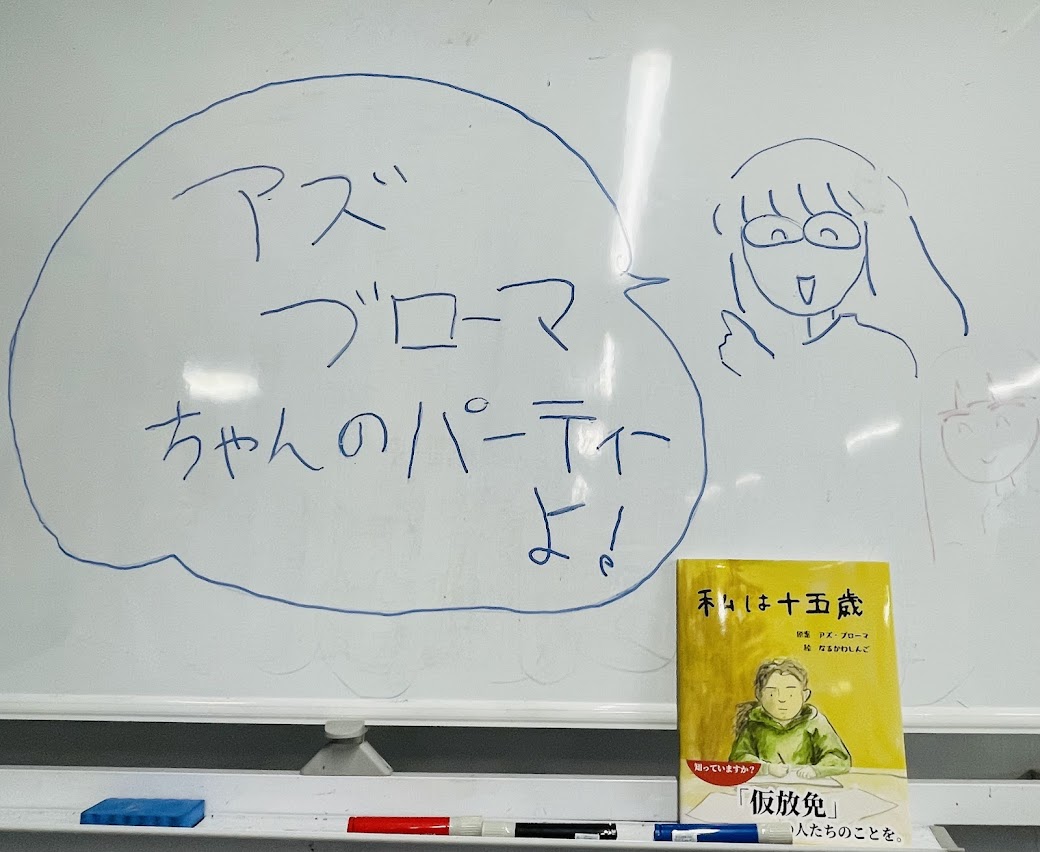 アズ
ブローマ
ちゃんのパーティー
よ!
私は十五歳
原案 アズ・ブローマ
絵 なるかわしんご
知っていますか?
「仮放免」
の人たちのことを。